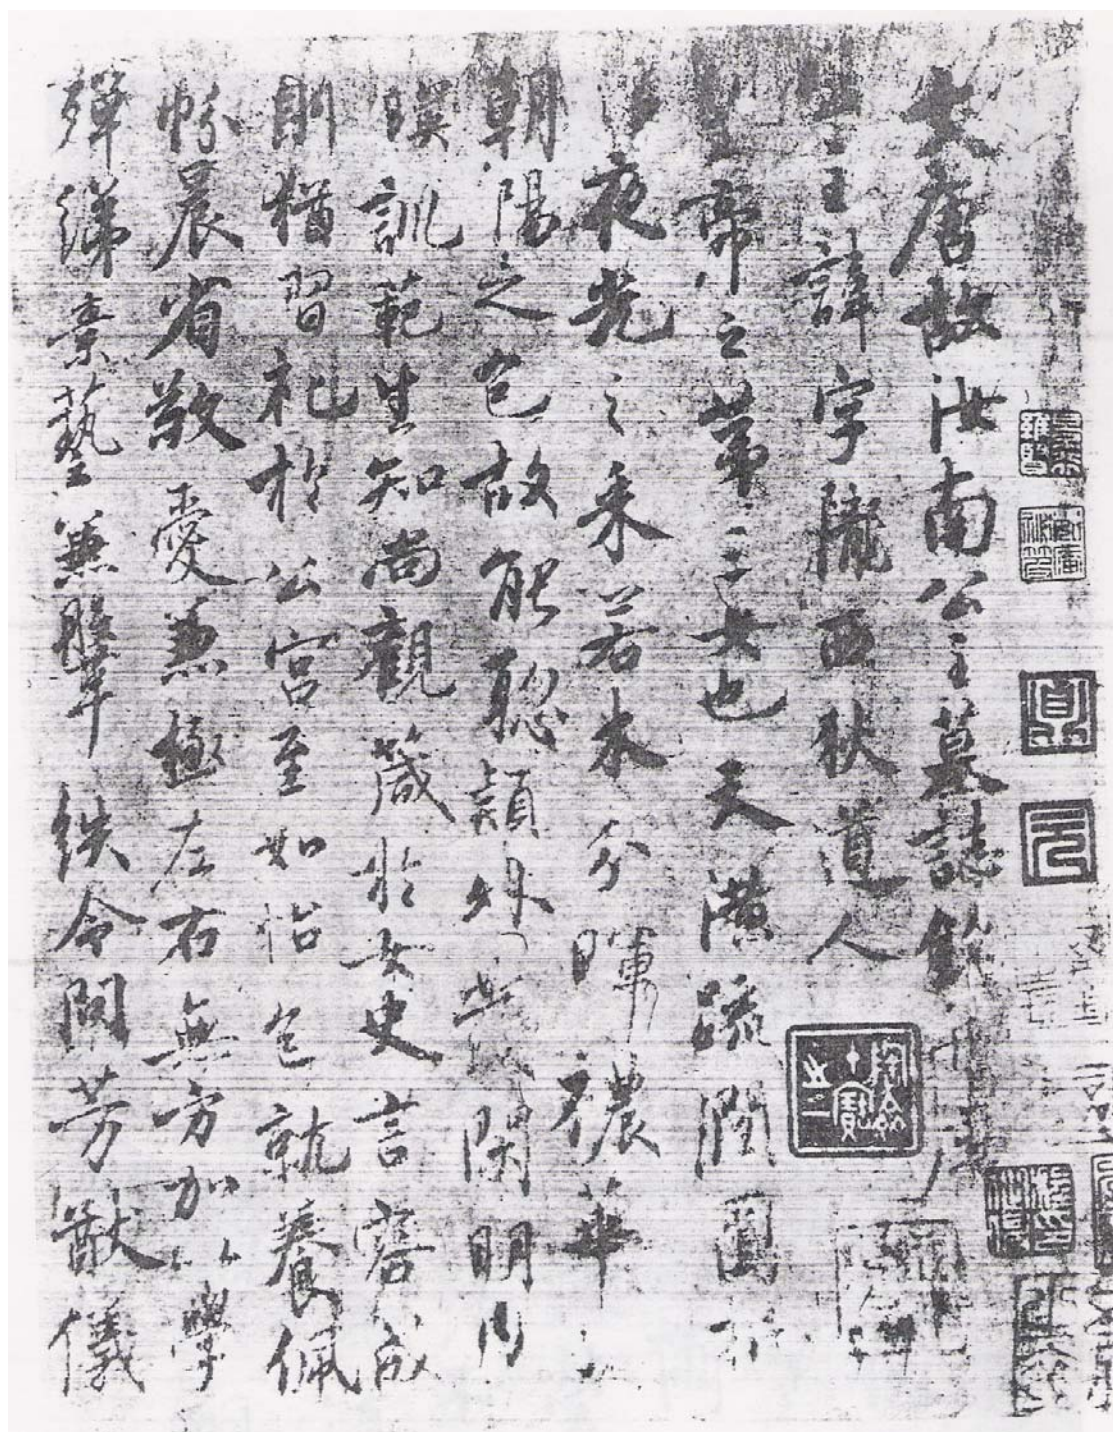 大唐故汝南公主墓誌銘并序
公主諱字隴西狄道人
皇帝之第三女也天潢疏潤圓折
夜光之采若木分暉穠華
朝陽之色故能聰穎外發閑明內
暎訓範生知尚觀箴於女史言容成
則猶習礼於公宮至如怡色就養佩
帉晨省敬愛兼極左右無方加以學
殫綈素藝兼鞶紩令問芳猷儀